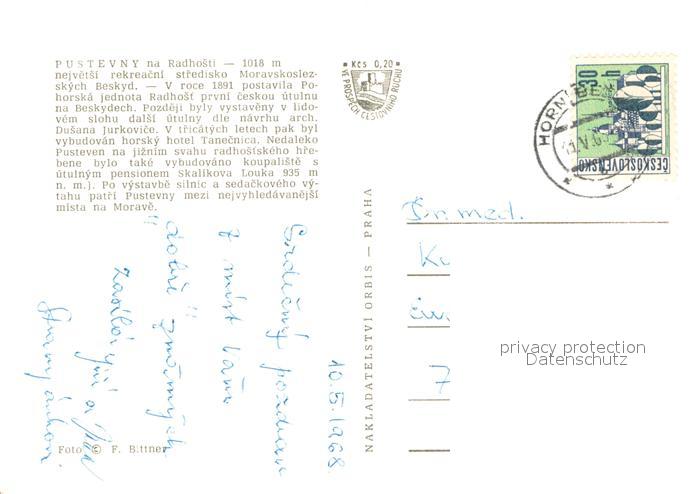 PUSTEVNY na Radhošti — 1018 m
největší rekreační středisko Moravskoslez-
ských Beskyd. — V roce 1891 postavila Po-
horská jednota Radhošť první českou útulnu
na Beskydech. Později byly vystavěny v lido-
vém slohu další útulny dle návrhu arch.
Dušana Jurkoviče. V třicátých letech pak byl
vybudován horský hotel Tanečnica. Nedaleko
Pusteven na jižním svahu radhošťského hře-
bene bylo také vybudováno koupaliště s
útulným pensionem Skalíkova Louka 935 m
n. m.). Po výstavbě silnic a sedačkového vý-
tahu patří Pustevny mezi nejvyhledávanější
místa na Moravě.
Foto © F. Bittner
Kčs 0,20
VE PROSPĚCH CESTOVNÍHO RUCHU
NAKLADATELSTVÍ ORBIS — PRAHA
30 h
ČESKOSLOVENSKO
HORNÍ BE
10.5.1968
Srdečný pozdrav
z míst Vám
dobře známých
zasílá
Dr. med.
privacy protection
Datenschutz